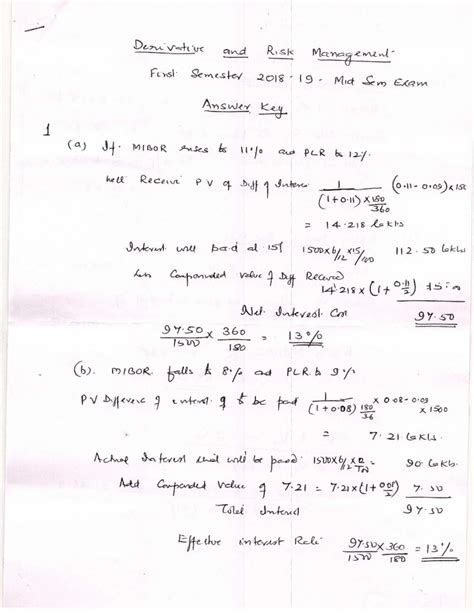 Derivative and Risk Management
First Semester 2018-19 - Mid Sem Exam
Answer Key
1
(a) If MIBOR rises to 11% and PLR to 12%.
will Receive PV of Diff of Interest 1/((1+0.11)×180/360) (0.11-0.09)×150
= 14.218 lakhs
Interest will paid at 15% 1500×6/12×15/100 112.50 lakhs
Less Compounded value of Diff Received
14.218×(1+0.11/2) 15.00
Net Interest Cost 97.50
97.50/1500 × 360/180 = 13%
(b). MIBOR falls to 8% and PLR to 9%
PV Difference of interest to be paid 1/((1+0.08)180/36) × 0.08-0.09 × 1500
= 7.21 lakhs.
Actual Interest that will be paid: 1500×6/12× 90.lakhs
Add Compounded value of 7.21 = 7.21×(1+0.08/2) 7.50
Total Interest 97.50
Effective interest Rate 97.50/1500 × 360/180 = 13%